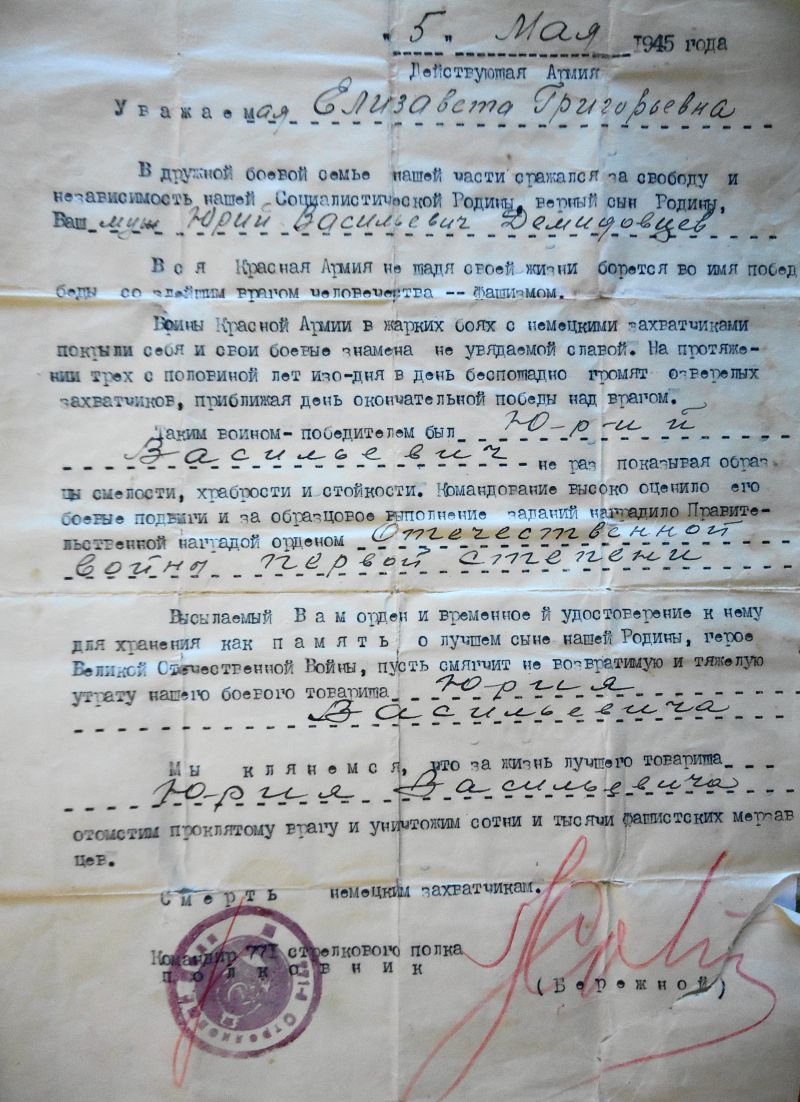 "5" Мая 1945 года
Действующая Армия
Уважаемая Елизавета Григорьевна
В дружной боевой семье нашей части сражался за свободу и
независимость нашей Социалистической Родины, верный сын Родины,
Ваш муж Юрий Васильевич Демидовцев
Вся Красная Армия не щадя своей жизни борется во имя побед
беды со злейшим врагом человечества -- фашизмом.
Воины Красной Армии в жарких боях с немецкими захватчиками
покрыли себя и свои боевые знамена не увядаемой славой. На протяже-
нии трех с половиной лет изо-дня в день беспощадно громят озверелых
захватчиков, приближая день окончательной победы над врагом.
Таким воином- победителем был Юрий
Васильевич не раз показывая образ
цы смелости, храбрости и стойкости. Командование высоко оценило его
боевые подвиги и за образцовое выполнение заданий наградило Правите-
льственной наградой орденом Отечественной
войны первой степени
Высылаемый Вам орден и временное й удостоверение к нему
для хранения как память о лучшем сыне нашей Родины, герое
Великой Отечественной Войны, пусть смягчит не возвратимую и тяжелую
утрату нашего боевого товарища Юрия
Васильевича
Мы клянемся, что за жизнь лучшего товарища
Юрия Васильевича
отомстим проклятому врагу и уничтожим сотни и тысячи фашистских мерзав
цев.
Смерть немецким захватчикам.
Командир 771 стрелкового полка
полковник
(Бережной)